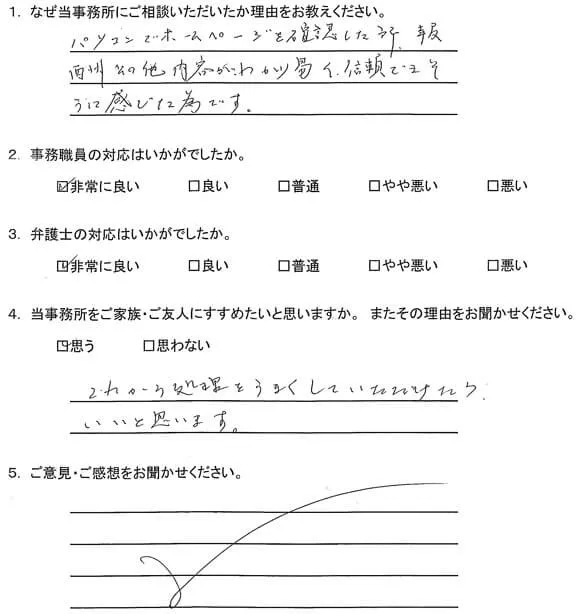 1. なぜ当事務所にご相談いただいたか理由をお教えください。
パソコンでホームページを確認した所、報
酬その他内容がわかり易く、信頼できそ
うに感じた為です。
2. 事務職員の対応はいかがでしたか。
☑非常に良い □良い □普通 □やや悪い □悪い
3. 弁護士の対応はいかがでしたか。
☑非常に良い □良い □普通 □やや悪い □悪い
4. 当事務所をご家族・ご友人にすすめたいと思いますか。 またその理由をお聞かせください。
☑思う □思わない
これから処理をうまくしていただけたら、
いいと思います。
5. ご意見・ご感想をお聞かせください。